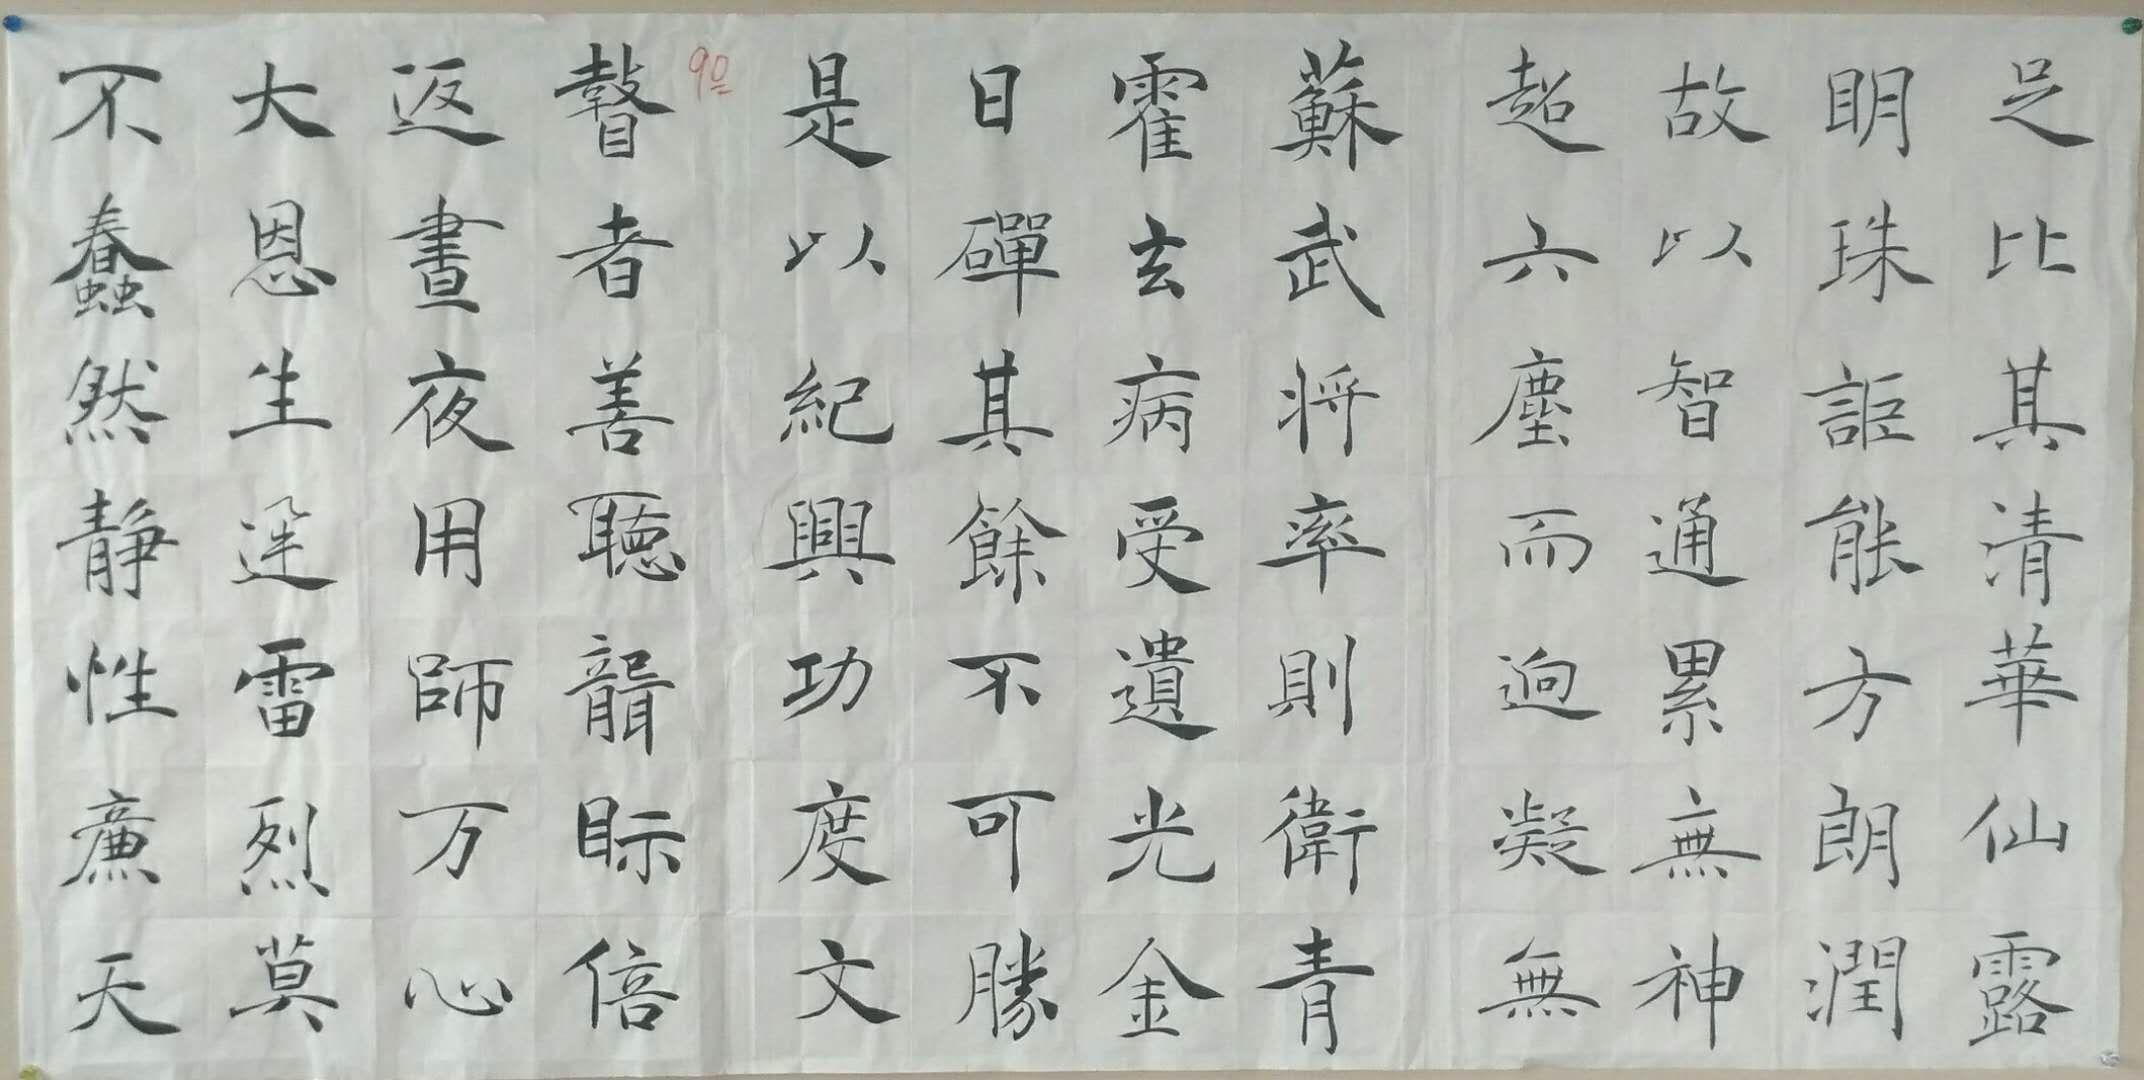 足比其清華仙露
眀珠詎能方朗潤
故以智通累無神
超六塵而迥凝無
蘇武将率則衛青
霍去病受遺光金
日磾其餘不可勝
是以紀興功度文
90
瞽者善聽聾眎倍
返晝夜用師万心
大恩生迅雷烈莫
不蠢然静性廉天